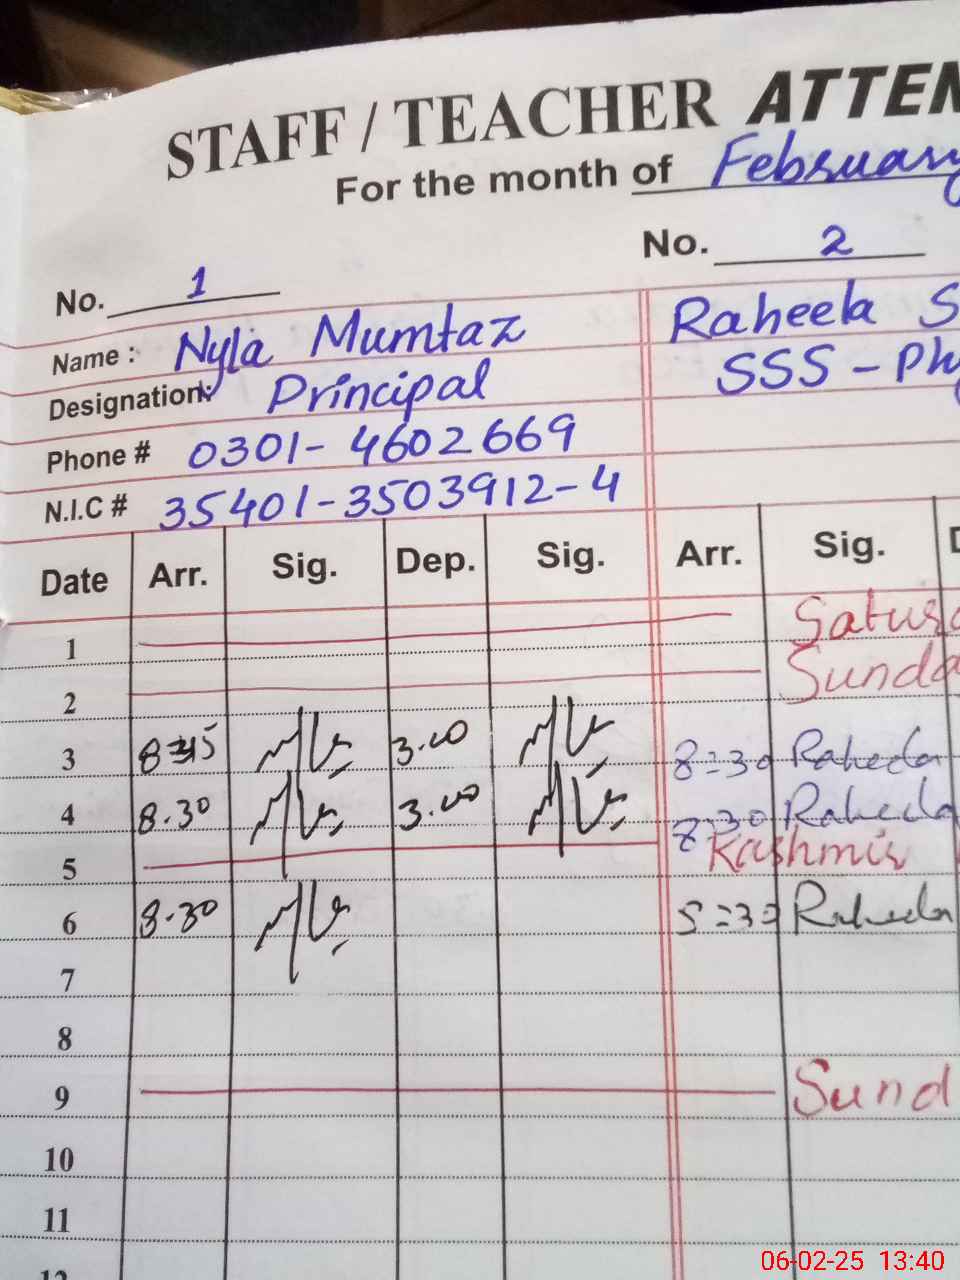 STAFF / TEACHER ATTEN
For the month of February
No. 1
No. 2
Name : Nyla Mumtaz
Raheela S
Designation: Principal
SSS - Phy
Phone # 0301-4602669
N.I.C # 35401-3503912-4
Date Arr. Sig. Dep. Sig. Arr. Sig. D
1 Saturd
2 Sunda
3 8:45 3.00 8:30 Raheela
4 8.30 3.00 8:30 Raheela
5 Kashmir
6 8.30 Raheela
7
8
9 Sund
10
11
12
06-02-25 13:40